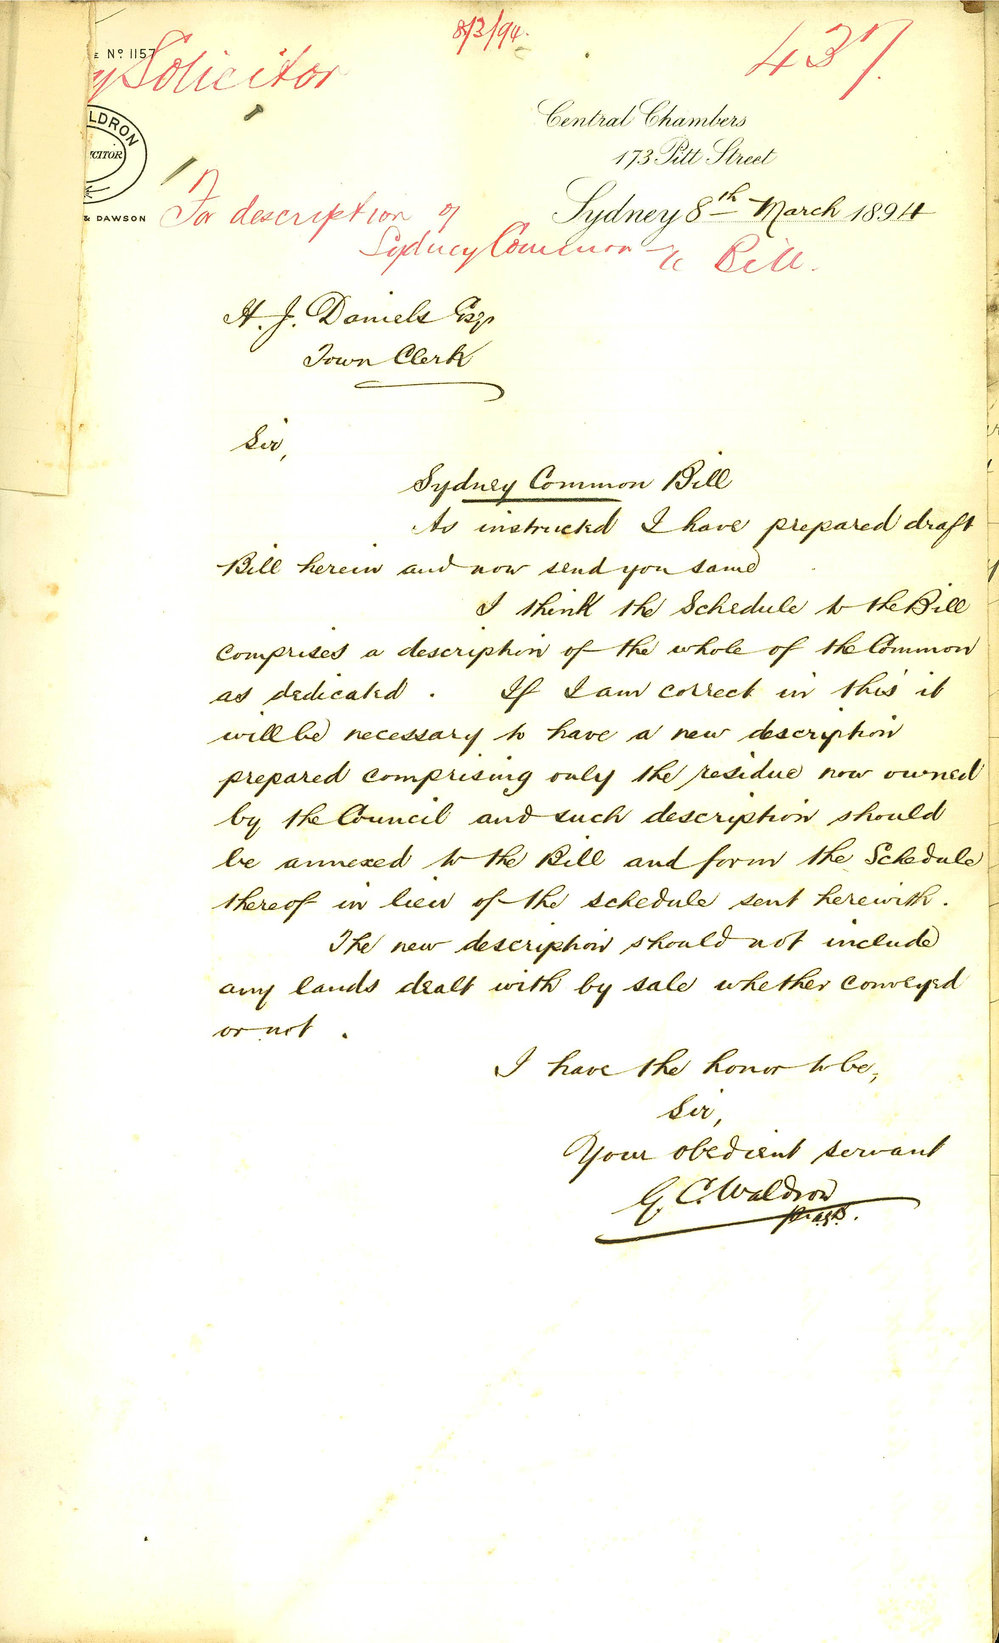 8/3/94.
437.
Nº 1157
y Solicitor
LDRON
ICITOR
& DAWSON
Central Chambers
173 Pitt Street
Sydney 8th March 1894
For description of
Sydney Common
Bill.
H. J. Daniels Esqr
Town Clerk
Sir,
Sydney Common Bill
As instructed I have prepared draft
Bill herein and now send you same
I think the Schedule to the Bill
comprises a description of the whole of the Common
as dedicated. If I am correct in this it
will be necessary to have a new description
prepared comprising only the residue now owned
by the Council and such description should
be annexed to the Bill and form the Schedule
thereof in lieu of the schedule sent herewith.
The new description should not include
any lands dealt with by sale whether conveyed
or not.
I have the honor to be,
Sir,
Your obedient servant
G. C. Waldron